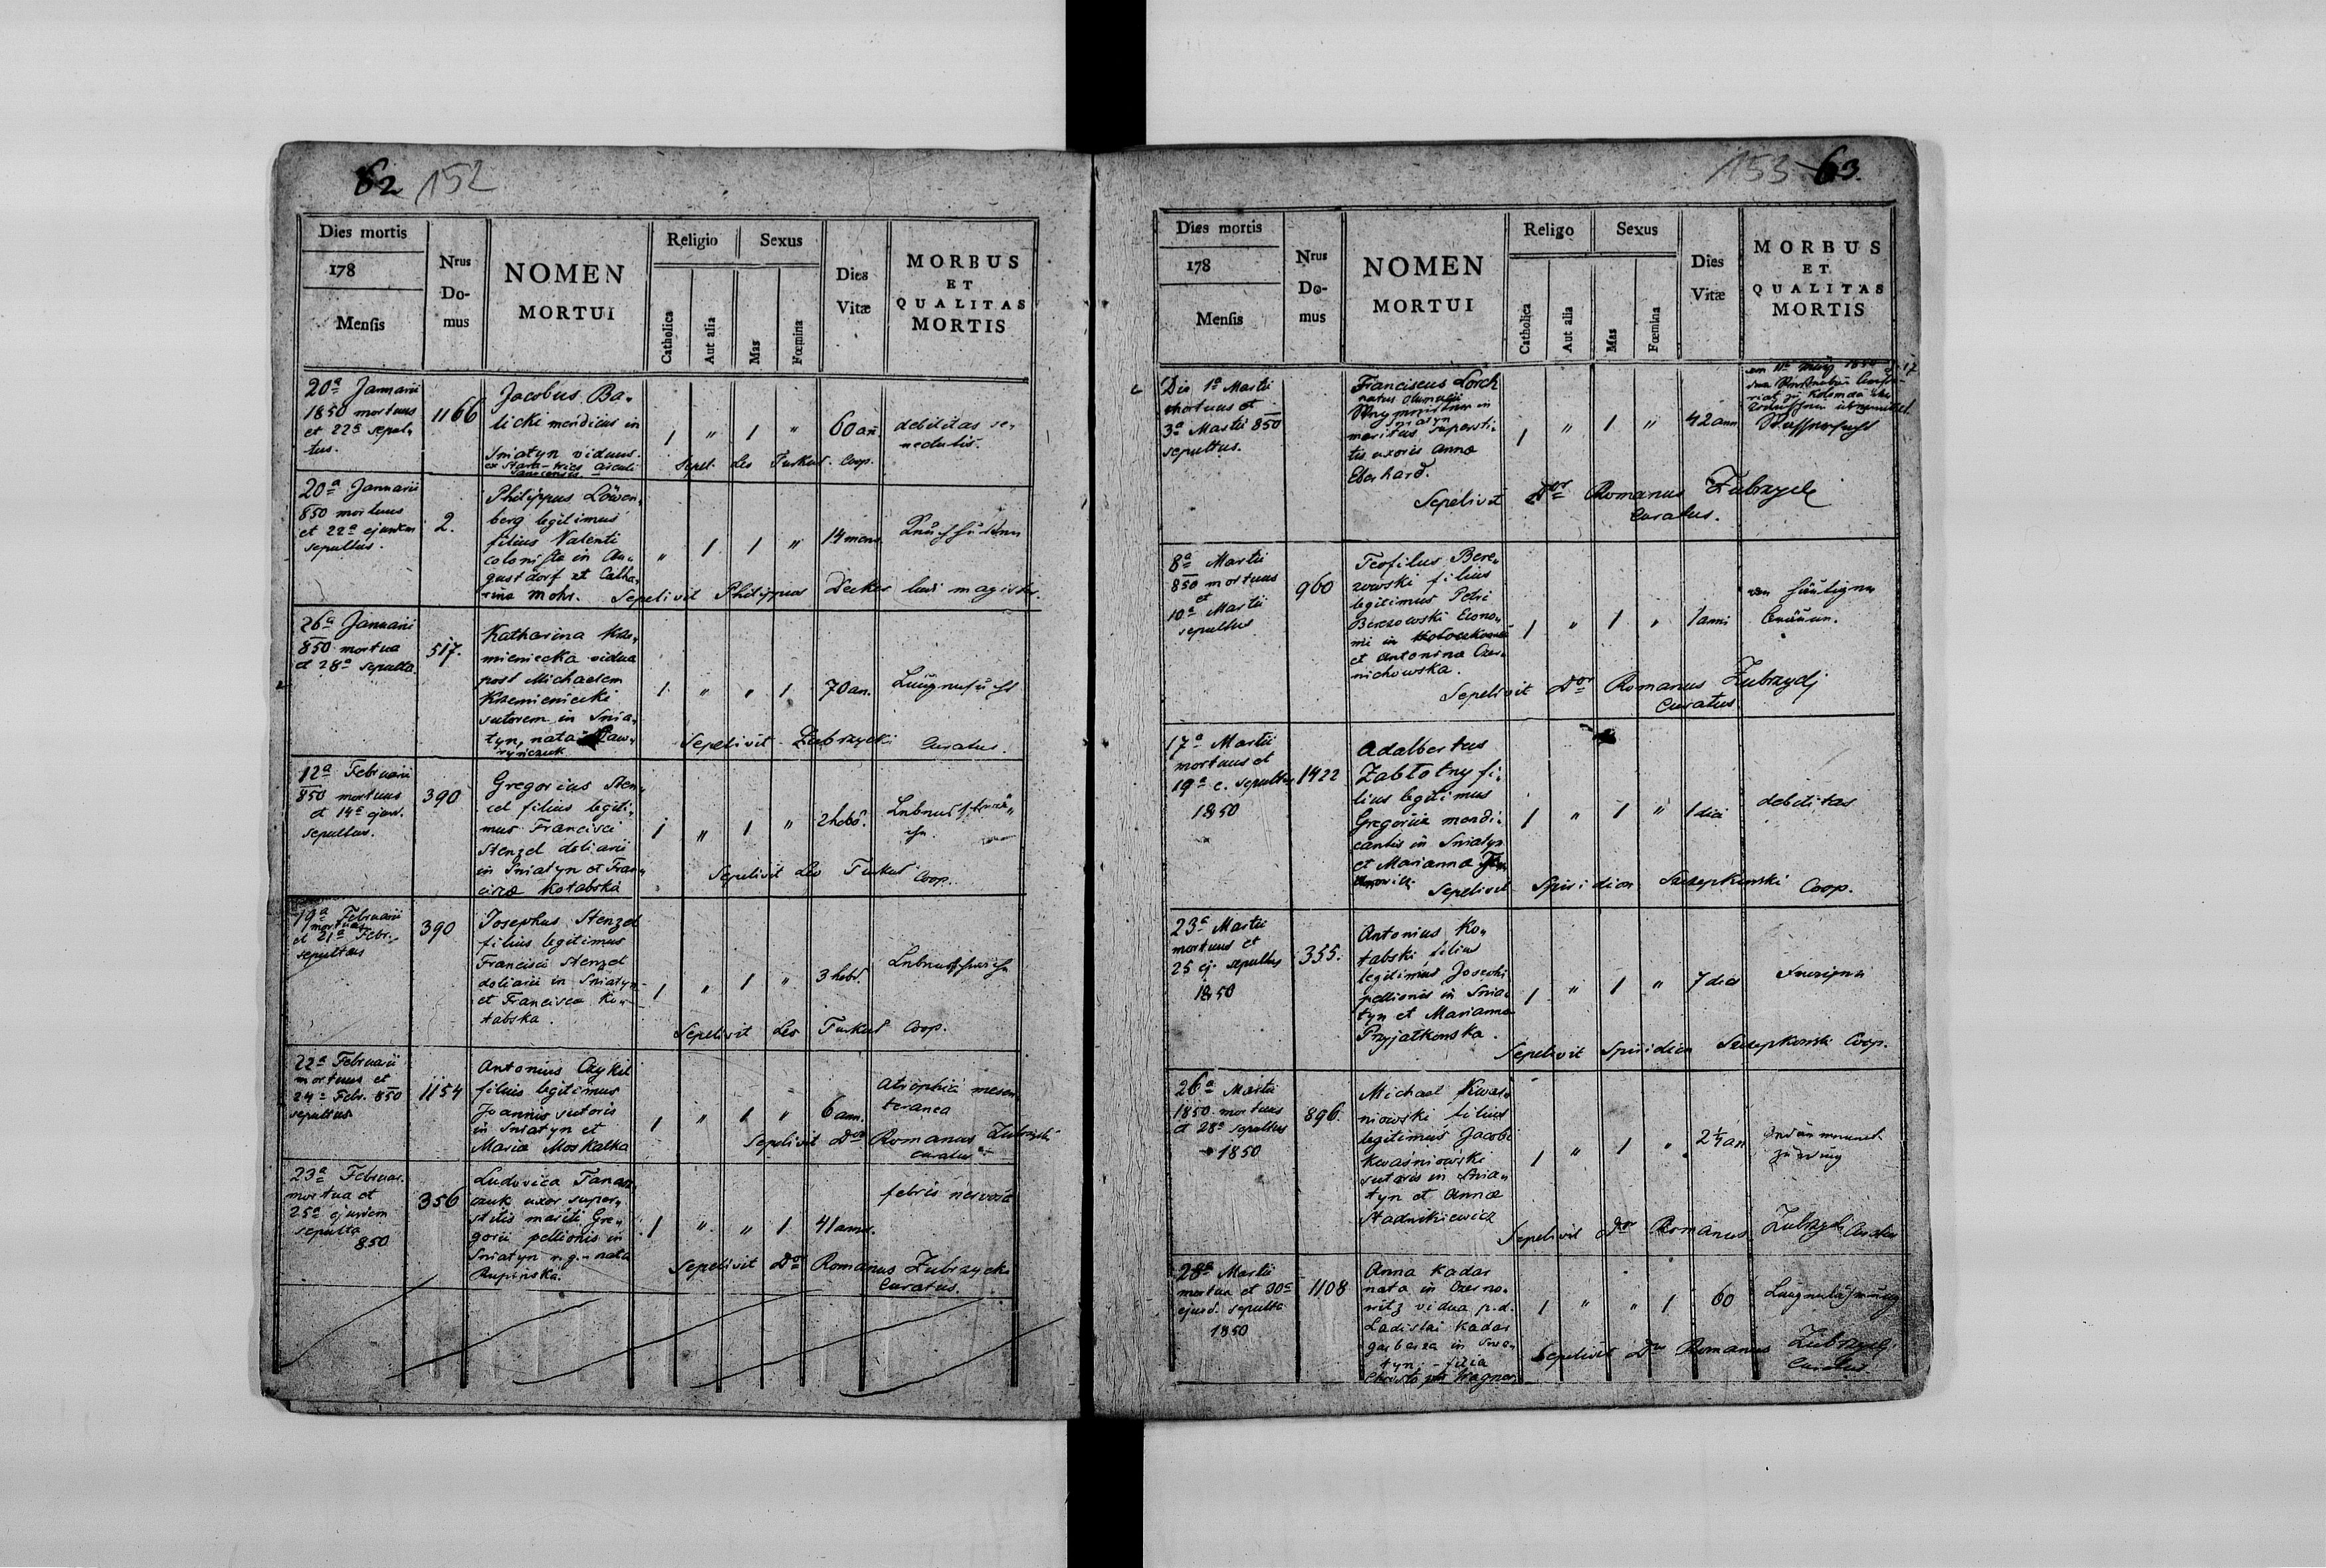 62 152
Dies mortis
178
Mensis
Nrus
Do-
mus
NOMEN
MORTUI
Religio
Catholica
Aut alia
Sexus
Mas
Fœmina
Dies
Vitæ
MORBUS
ET
QUALITAS
MORTIS
20a Januarii
1850 mortuus
et 22a sepul-
tus.
1166
Jacobus Ba-
licki mendicus in
Sniatyn viduus.
1 " 1 "
60 an.
debilitas se-
nectutis.
Sepel. Leo Turkuł. Coop.
20a Januarii
850 mortuus
et 22a ejusdem
sepultus.
2.
Philippus Löwen-
berg legitimus
filius Valenti
coloniste in Au-
gustdorf et Catha-
rina Mohr.
" 1 1 "
14 mens.
Keuchhusten
Sepelivit Philippus Decker ludi magister.
26a Januarii
850 mortua
et 28a sepulta
517.
Katharina Krze-
mieniecka vidua
post Michaelem
Krzemieniecki
sutorem in Snia-
tyn, nata Ław-
ryńczuk
1. " " 1.
70 an.
Lungensucht
Sepelivit Zubrzycki Curatus.
12a Februarii
850 mortuus
et 14a ejusd.
sepultus.
390
Gregorius Sten-
cel filius legiti-
mus Francisci
Stenzel doliarii
in Sniatyn et Fran-
cisca Kotabska
1 " 1 "
2 hebd.
Lebensschwä-
che
Sepelivit Leo Turkuł Coop.
19a Februarii
mortuus
et 21a Febr.
sepultus
390
Josephus Stenzel
filius legitimus
Francisci Stenzel
doliarii in Sniatyn
et Francisca Ko-
tabska.
1 " 1 "
3 hebd.
Lebensschwäche
Sepelivit Leo Turkuł Coop.
22a Februarii
mortuus et
24a Febr. 850
sepultus
1154
Antonius Czykil
filius legitimus
Joannis sutoris
in Sniatyn et
Maria Moskalka
1 " 1 "
6 ann.
atrophia mesen-
teranea
Sepelivit Dor Romanus Zubrzycki
curatus
23a Februar.
mortua et
25a ejusdem
sepulta
850
356
Ludovica Tanas-
czuk uxor super-
stitis mariti Gre-
gorii pellionis in
Sniatyn r.g. nata
Rupinska.
1 " " 1.
41 ann.
febris nervosa
Sepelivit Dor Romanus Zubrzycki
Curatus.
153 63.
Dies mortis
178
Mensis
Nrus
Do-
mus
NOMEN
MORTUI
Religo
Catholica
Aut alia
Sexus
Mas
Fœmina
Dies
Vitæ
MORBUS
ET
QUALITAS
MORTIS
Die 1a Martii
mortuus et
3a Martii 850
sepultus.
Franciscus Lorch
natus Olomucii
maritus supersti-
tis uxoris Anna
Eberhard.
1 " 1 "
42 ann
Wassersucht
Sepelivit Dor Romanus Zubrzycki
Curatus.
8a Martii
850 mortuus
et
10a Martii
sepultus
960
Teofilus Bere-
zowski filius
legitimus Petri
Berezowski Econo-
mi in
et Antonina Czer-
nichowska.
1 " 1 "
1 anni
von häutigen
Bräune.
Sepelivit Dor Romanus Zubrzycki
Curatus
17a Martii
mortuus et
19a e. sepultus
1850
1422
Adalbertus
Zabłotny fi-
lius legitimus
Gregorii mendi-
cantis in Sniatyn
et Marianna
1 " 1 "
1 diei
debilitas
Sepelivit Spiridion Szczepkowski Coop.
23a Martii
mortuus et
25 ej. sepultus
1850
355.
Antonius Ko-
tabski filius
legitimus Josephi
pellionis in Snia-
tyn et Marianna
Przyjatkowska.
1 " 1 "
7 dies
Sepelivit Spiridion Szczepkowski Coop.
26a Martii
1850 mortuus
et 28a sepultus
1850
896.
Michael Kwaś-
niowski filius
legitimus Jacobi
Kwaśniowski
sutoris in Snia-
tyn et Anna
Stadnikiewicz
1 " 1 "
2 1/4 an
Sepelivit Dor Romanus Zubrzycki Curatus
28a Martii
mortua et 30a
ejusd. sepulta
1850
1108
Anna Kadar
nata in Czerno-
witz vidua p.d.
Ladislai Kadar
garbarza in Snia-
tyn - filia
Christoph Wagner
1 " " 1
60
Lungenlähmung
Sepelivit Dor Romanus Zubrzycki
Curatus.